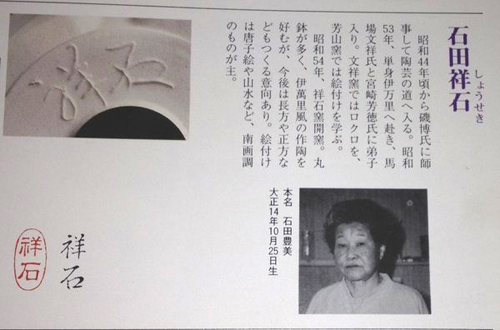 石田祥石
しょうせき
昭和44年頃から磯博氏に師
事して陶芸の道へ入る。昭和
53年、単身伊万里へ赴き、馬
場文祥氏と宮崎芳徳氏に弟子
入り。文祥窯ではロクロを、
芳山窯では絵付けを学ぶ。
昭和54年、祥石窯開窯。丸
鉢が多く、伊萬里風の作陶を
好むが、今後は長方や正方な
どもつくる意向あり。絵付け
は唐子絵や山水など、南画調
のものが主。
本名 石田豊美
大正14年10月25日生
祥石
祥石
祥石